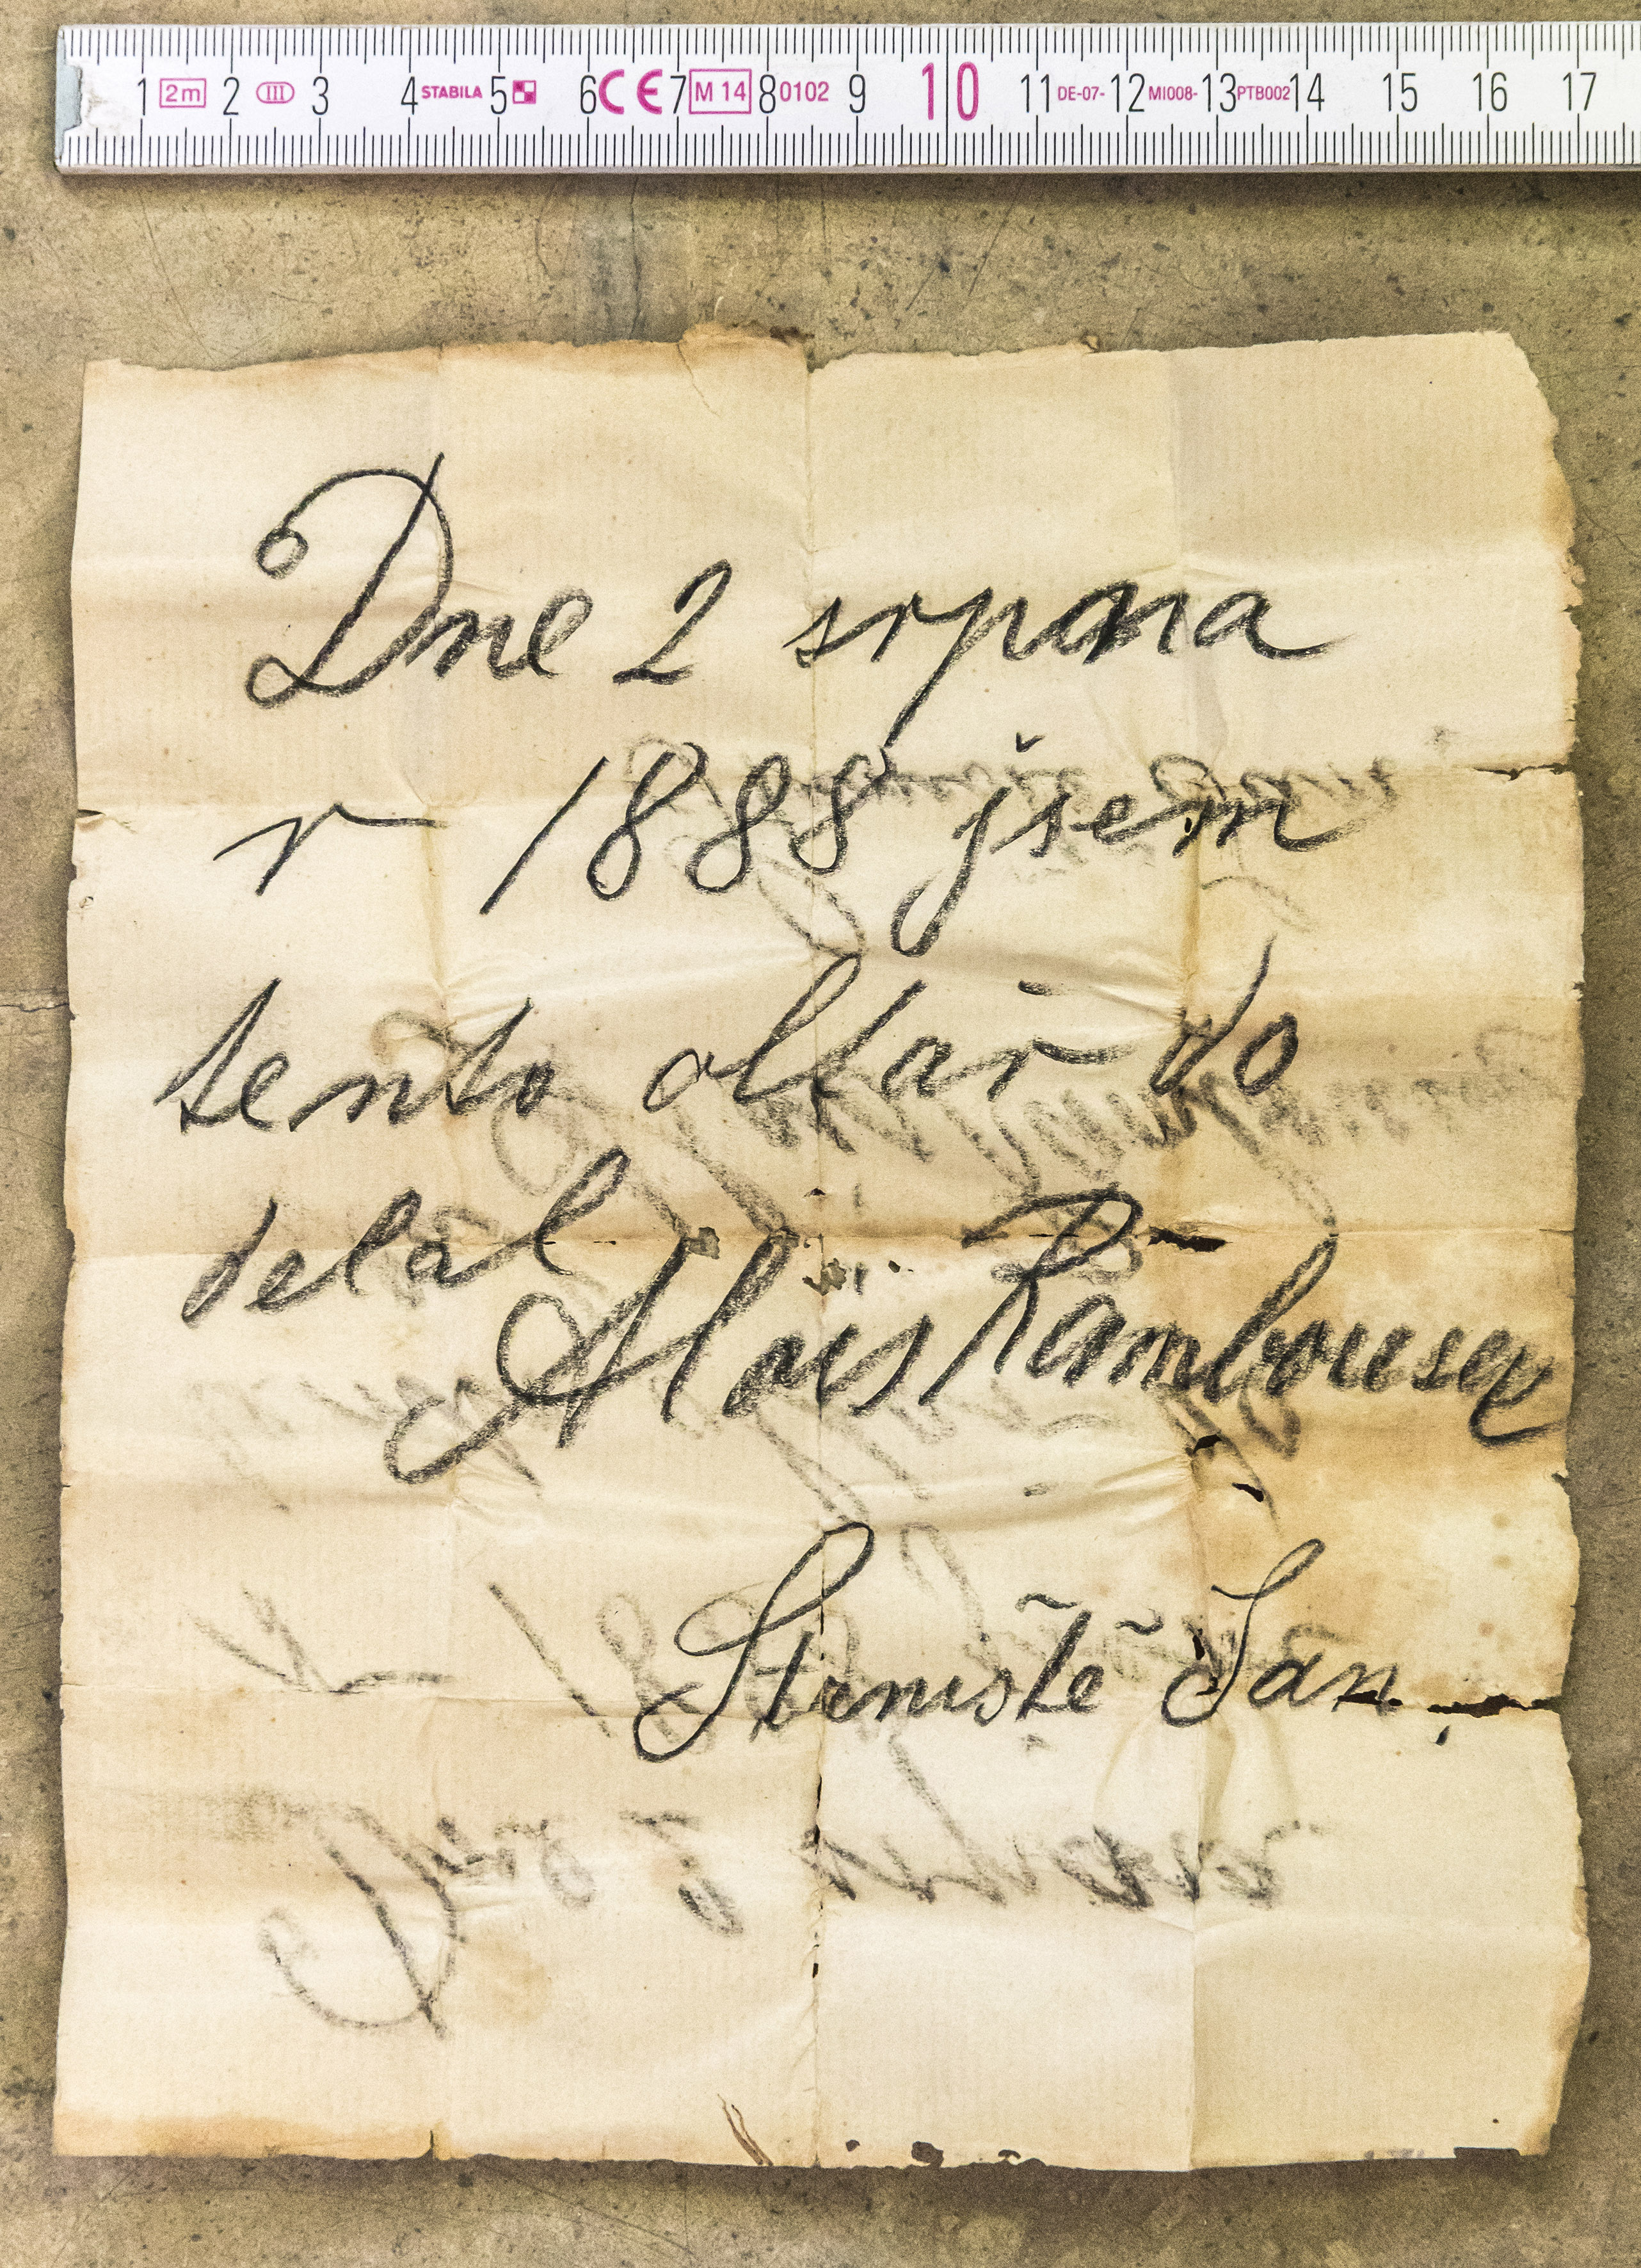 1 2m 2 III 3 4 STABILA 5 6 CE 7 M 14 8 0102 9 10 11 DE-07- 12 MI008- 13 PTB002 14 15 16 17
Dne 2 srpna
r 1888 jsem
tento oltař do
delal
Alois Rambousek
Jan